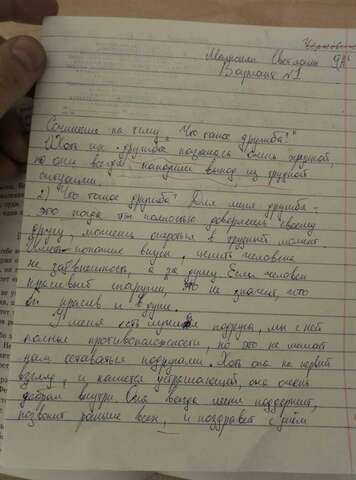 Черновик
9"А"
Вариант №1
Сочинение на тему „Что такое дружба?"
1) Хоть их дружба казалась очень хрупкой,
но они всегда находили выход из трудной
ситуации.
2) Что такое дружба? Для меня дружба -
это когда ты полностью доверяешь своему
другу, можешь в трудный момент
вкусы, ценить человека
не за внешность, а за душу. Если человек
красивый снаружи, это не значит, что
он красив и в душе.
У меня есть лучшая подруга, мы с ней
полные противоположности, но это не мешает
нам оставаться подругами. Хоть она на первый
взгляд, и кажется устрашающей, она очень
добрая внутри. Она всегда меня поддержит,
позвонит раньше всех, и поздравит с днём